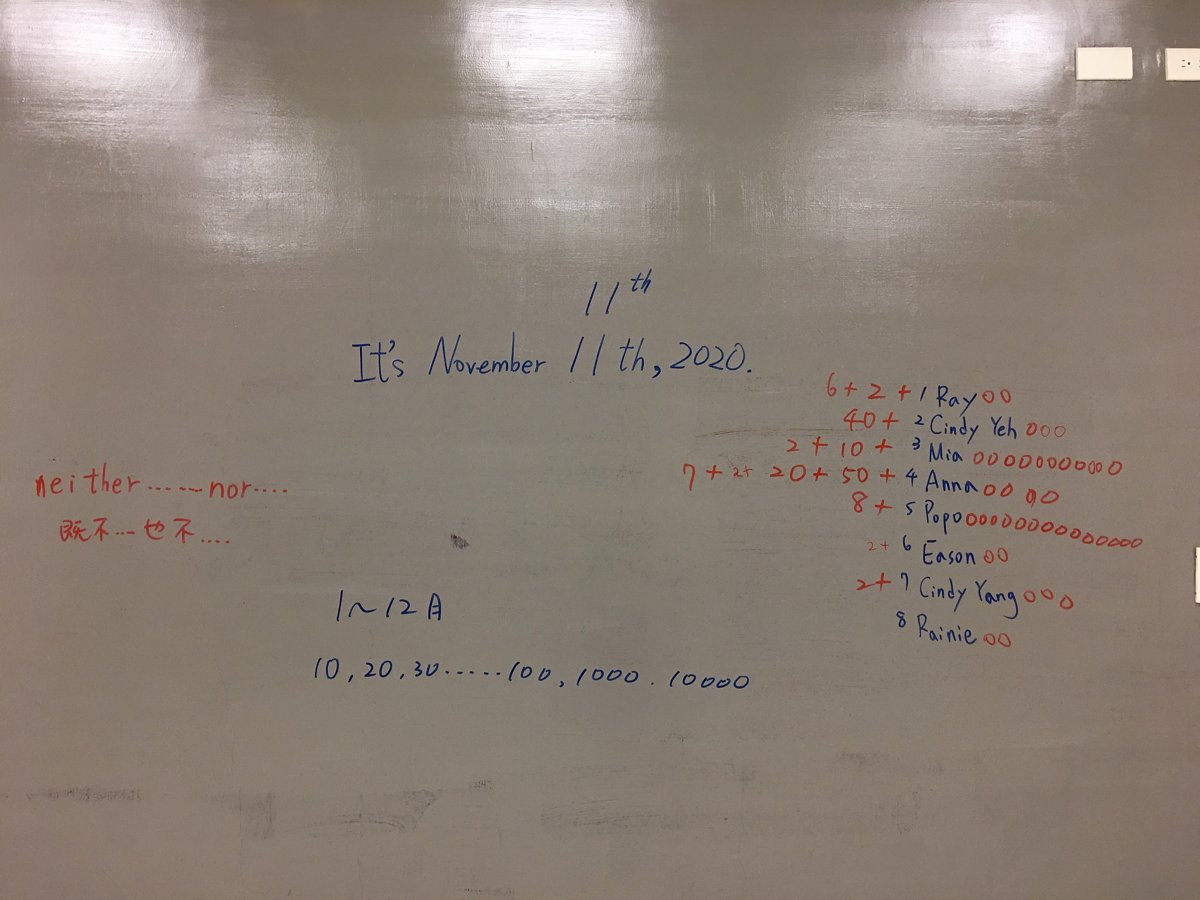 11th
It's November 11th, 2020.
6+ 2 + 1 Ray OO
40+ 2 Cindy Yeh OOO
2 + 10 + 3 Mia OOOOOOOOOO
7 + 2+ 20 + 50 + 4 Anna OO OO
8 + 5 Popo OOOOOOOOOOOOOO
2+ 6 Eason OO
2+ 7 Cindy Yang OOO
8 Rainie OO
neither ...... nor ....
既不 ... 也不 ....
1~12月
10, 20, 30 ...... 100, 1000. 10000